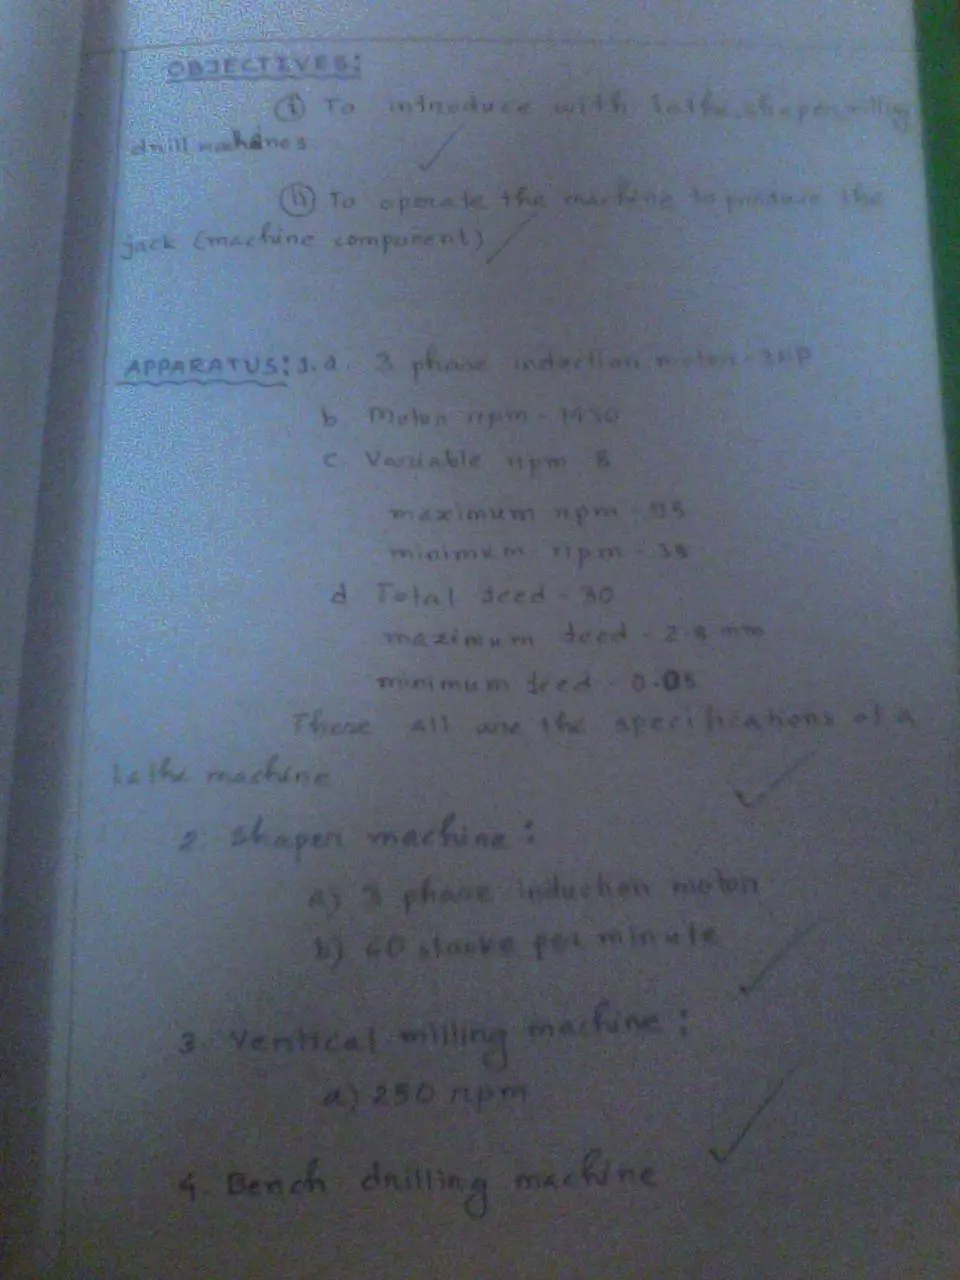 OBJECTIVES:
(i) To introduce with lathe, shaper, milling
drill machines
(ii) To operate the machine to produce the
jack (machine component)
APPARATUS: 1.a. 3 phase induction motor - 3HP
b. Motor rpm - 1430
c. Variable rpm 8
maximum rpm
minimum rpm - 38
d Total feed - 30
maximum feed - 2.8 mm
minimum feed - 0.05
These all are the specifications of a
Lathe machine
2. Shaper machine:
a) 3 phase induction motor
b) 60 stroke per minute
3. Vertical milling machine:
a) 250 rpm
4. Bench drilling machine